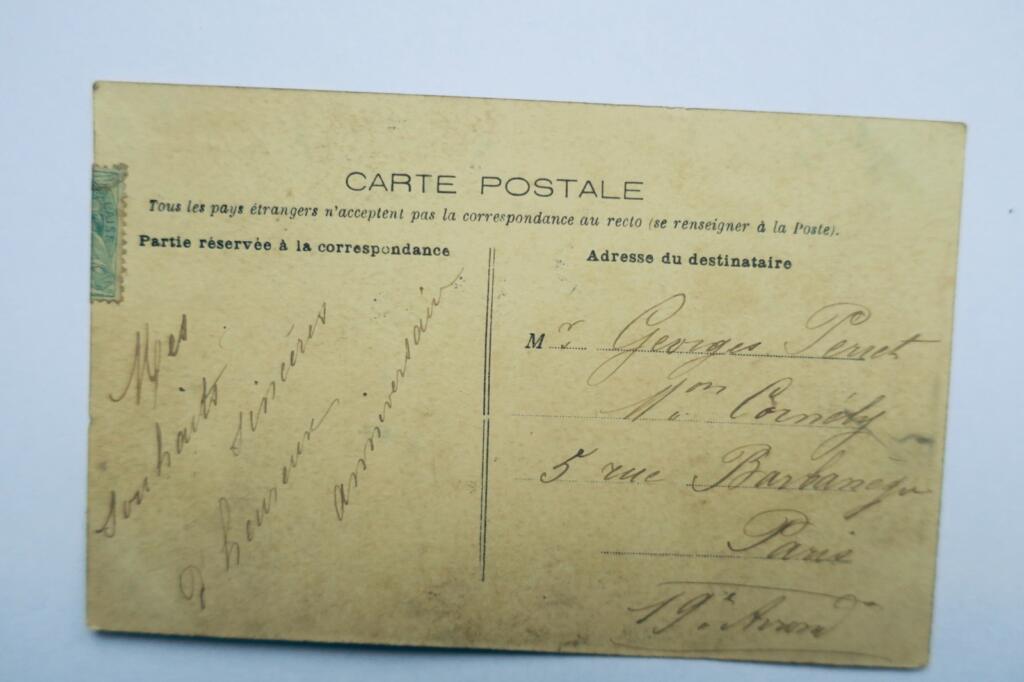 CARTE POSTALE
Tous les pays étrangers n'acceptent pas la correspondance au recto (se renseigner à la Poste).
Partie réservée à la correspondance
Mes
souhaits
sincères
d'heureux
anniversaire
Adresse du destinataire
Mr Georges Perret
Mon Cornély
5 rue Barbanègre
Paris
19e Arrond